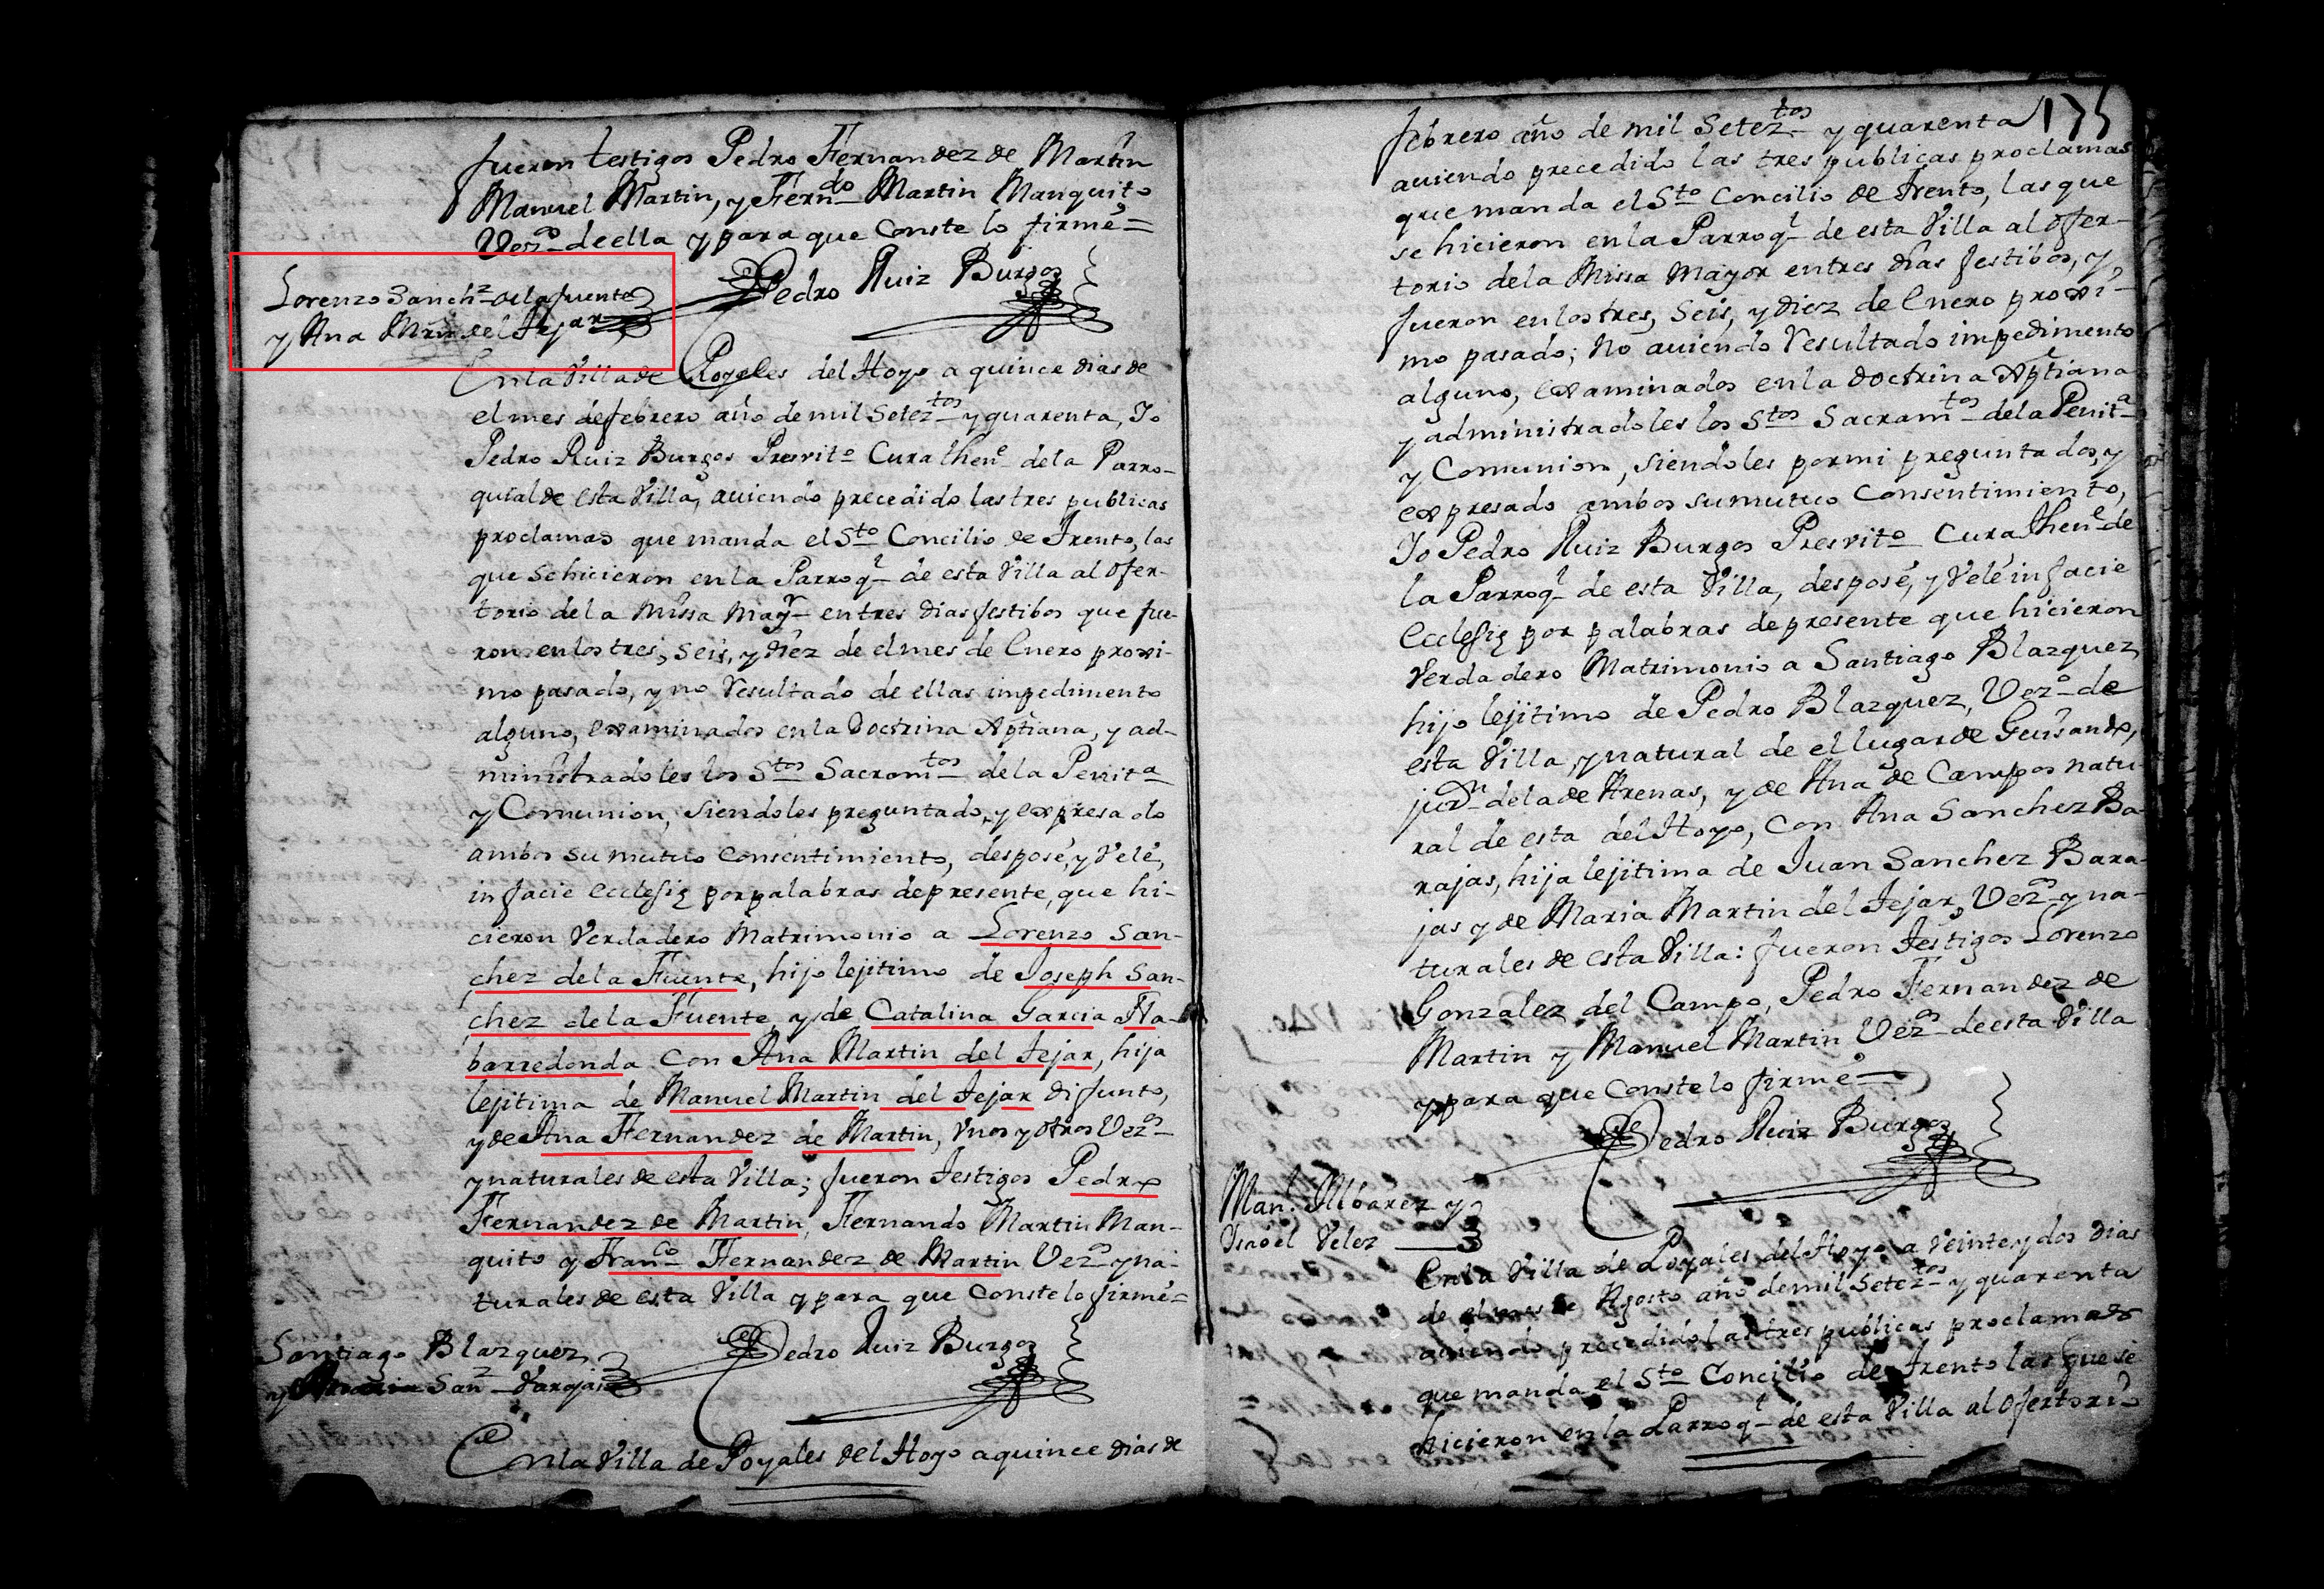 fueron testigos Pedro Fernandez de Martin
Manuel Martin, y Fern.do Martin Manquito
Vez.os de ella y para que Conste lo firmé=
Pedro Ruiz Burgos
Lorenzo Sanch.z de la fuente
y Ana Mrn del Tejar
En la Villa de Poyales del Hoyo a quince dias de
el mes de febrero año de mil Setez.tos y quarenta, Yo
Pedro Ruiz Burgos Presvit.o Cura then.e de la Parro-
quial de esta Villa, aviendo precedido las tres publicas
proclamas que manda el S.to Concilio de Trento, las
que se hicieron en la Parroq.l de esta Villa al Ofer-
torio de la Missa May.r en tres dias festibos que fue-
ron en los tres, seis, y diez de el mes de Enero proxi-
mo pasado, y no resultado de ellas impedimento
alguno, examinados en la Doctrina Xptiana, y ad-
ministradoles los S.tos Sacram.tos de la Penit.a
y Comunion, siendoles preguntado, y expresado
ambos su mutuo consentimiento, desposé, y Velé,
in facie ecclesię por palabras de presente, que hi-
cieron Verdadero Matrimonio a Lorenzo San-
chez de la Fuente, hijo lejitimo de Joseph San-
chez de la Fuente y de Catalina Garcia Na-
barredonda con Ana Martin del Tejar, hija
lejitima de Manuel Martin del Tejar difunto,
y de Ana Fernandez de Martin, Vnos y otros Vez.os
y naturales de esta Villa; fueron Testigos Pedro
Fernandez de Martin, Fernando Martin Man-
quito y Fran.co Fernandez de Martin Vez.os y na-
turales de esta Villa y para que Conste lo firmé=
Pedro Ruiz Burgos
Santiago Blazquez
y San.z Barajas
En la Villa de Poyales del Hoyo a quince dias de
175
febrero año de mil Setez.tos y quarenta
aviendo precedido las tres publicas proclamas
que manda el S.to Concilio de Trento, las que
se hicieron en la Parroq.l de esta Villa al Ofer-
torio de la Missa Mayor en tres dias festibos, y
fueron en los tres, Seis, y diez de Enero proxi-
mo pasado; no aviendo resultado impedimento
alguno, examinados en la Doctrina Xptiana
y administradoles los S.tos Sacram.tos de la Penit.a
y Comunion, siendoles por mi preguntados, y
expresado ambos su mutuo Consentimiento,
Yo Pedro Ruiz Burgos Presvit.o Cura then.e de
la Parroq.l de esta Villa, desposé, y Velé in facie
Ecclesię por palabras de presente que hicieron
Verdadero Matrimonio a Santiago Blazquez
hijo lejitimo de Pedro Blazquez, Vez.o de
esta Villa, y natural de el lugar de Guisando,
jur.on de la de Arenas, y de Ana de Campos natu-
ral de esta del Hoyo, con Ana Sanchez Ba-
rajas, hija lejitima de Juan Sanchez Bara-
jas y de Maria Martin del Tejar, Vez.os y na-
turales de esta Villa: fueron Testigos Lorenzo
Gonzalez del Campo, Pedro Fernandez de
Martin y Manuel Martin Vez.os de esta Villa
y para que Conste lo firmé=
Pedro Ruiz Burgos
Man.l Albarez y
Ysabel Velez
En la Villa de Poyales del Hoyo a Veinte y dos dias
de el mes de Agosto año de mil Setez.tos y quarenta
aviendo precedido las tres publicas proclamas
que manda el S.to Concilio de Trento las que se
hicieron en la Parroq.l de esta Villa al Ofertorio